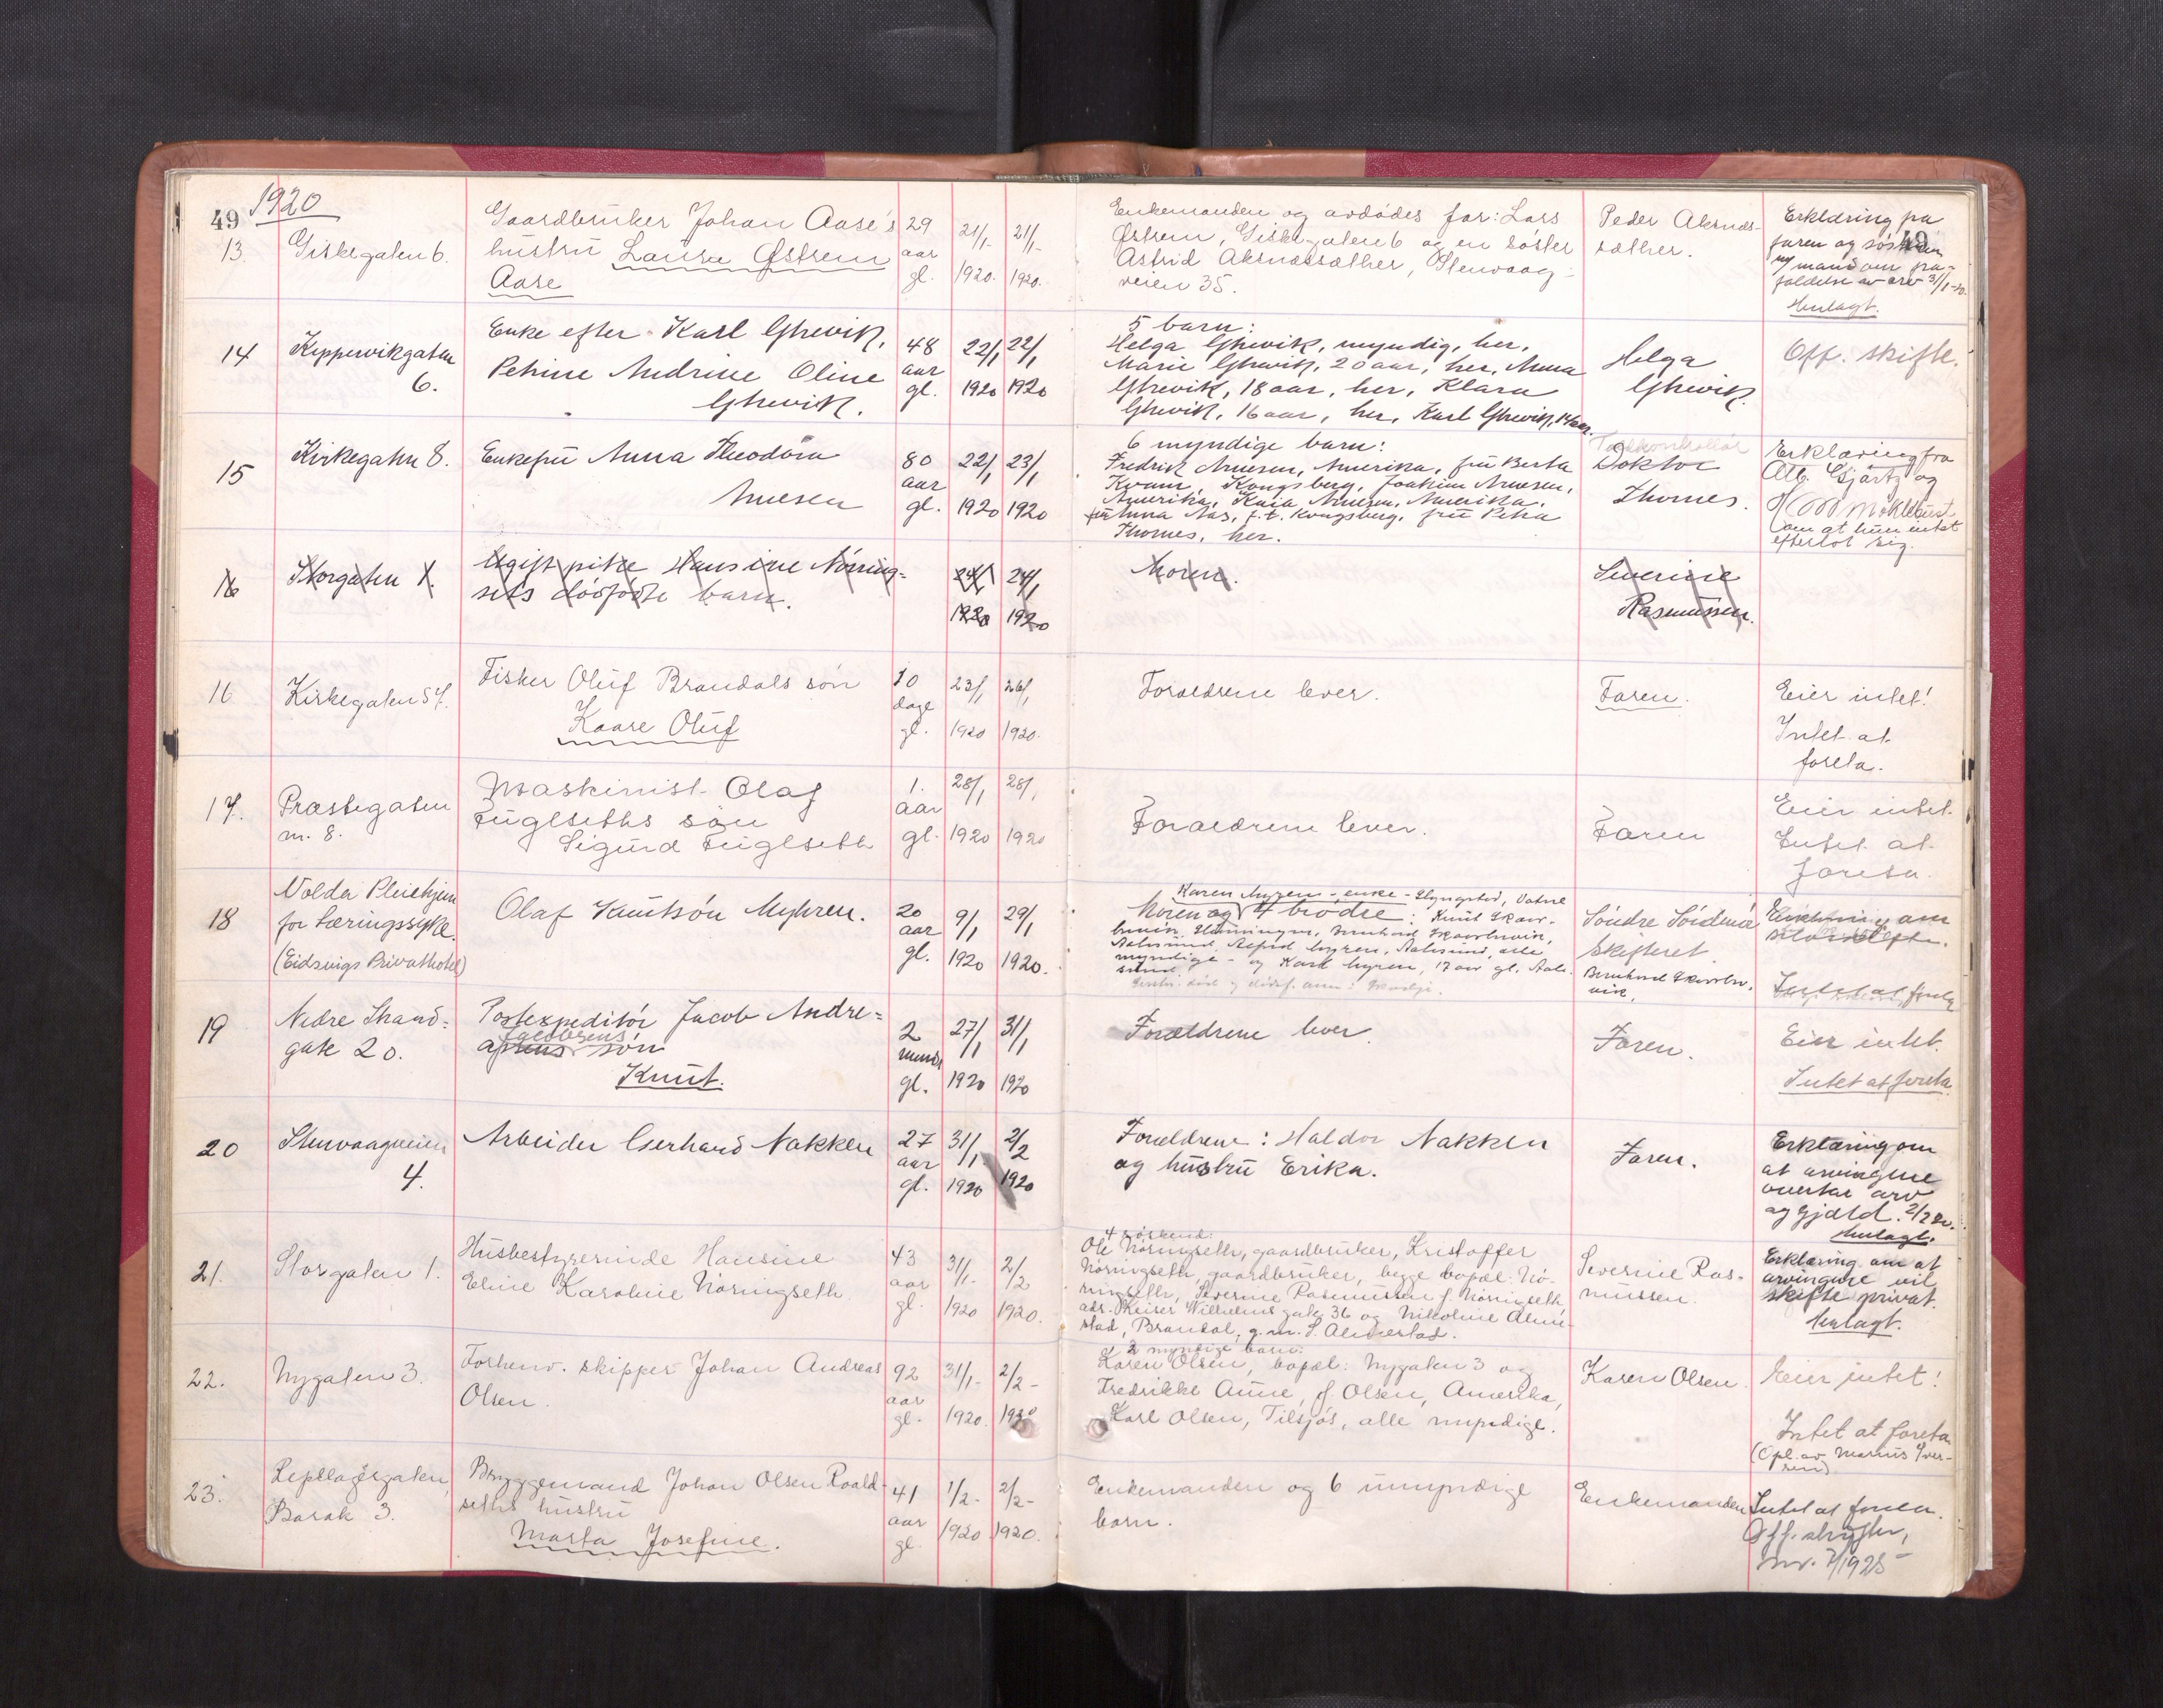 49 1920
13. Giskegaten 6.
Gaardbruker Johan Aase's
hustru Laura Østrem
Aase
29
aar
gl.
21/1-
1920.
21/1-
1920.
Enkemanden og avdødes far: Lars
Østrem, Giskegaten 6 og en søster
Astrid Aksnessæther, Stenvaag-
veien 35.
Peder Aksnes-
sæther.
49
Erklæring fra
faren og søsteren
m/ mand om fra-
faldelse av arv 31/1-20.
Henlagt.
14 Kippervikgaten
6.
Enke efter Karl Ghevik,
Petrine Andrine Oline
Ghevik.
48
aar
gl.
22/1
1920
22/1
1920
5 barn:
Helga Ghevik, myndig, her,
Marie Ghevik, 20 aar, her, Anna
Ghevik, 18 aar, her, Klara
Ghevik, 16 aar, her, Karl Ghevik, 14 aar.
Helga
Ghevik.
Off. skifte.
15 Kirkegaten 8.
Enkefru Anna Theodora
Arnesen
80
aar
gl.
22/1
1920
23/1
1920
6 myndige barn:
Fredrik Arnesen, Amerika, fru Berta
Kvam, Kongsberg, Joakim Arnesen,
Amerika, Kaia Arnesen, Amerika,
fru Anna Aas, f.t. Kongsberg, fru Petra
Thomes, her.
Doktor
Thomes.
Erklæring fra
Alb. Gjørtz og
Moklebust
om at hun intet
efterlot sig.
16 Storgaten 1.
Ugift pike Hansine Nørring-
sets dødfødte barn.
24/1
1920
24/1
1920
Moren.
Severine
Rasmussen.
16 Kirkegaten 54.
Fisker Oluf Brandals søn
Kaare Oluf
10
dage
gl.
23/1
1920
26/1
1920.
Forældrene lever.
Faren.
Eier intet!
Intet at
foreta.
17. Præstegaten
nr. 8.
Maskinist Olaf
Fuglseths søn
Sigurd Fuglseth
1.
aar
gl.
28/1
1920
28/1
1920
Forældrene lever.
Faren
Eier intet.
Intet at
foreta.
18 Volda Pleiehjem
for tæringssyke.
(Eidsvigs Privathotel)
Olaf Knutsøn Myhren.
20
aar
gl.
9/1
1920
29/1
1920.
Karen Myren - enke -
Moren og 4 brødre: Knut
myndige - og Karl Myren, 17 aar gl. Aale-
sund.
Søndre Søndmør
skifteret.
Intet at foreta
19 Nedre Strand-
gate 20.
Postexpeditør Jacob Andre-
Jacobsens
asens søn
Knut.
2
mndr
gl.
27/1
1920
31/1
1920
Forældrene lever.
Faren.
Eier intet.
Intet at foreta.
20 Stenvaagveien
4.
Arbeider Gerhard Nakken
27
aar
gl.
31/1
1920
2/2
1920
Forældrene: Haldor Nakken
og hustru Erika.
Faren.
Erklæring om
at arvingene
overtar arv
og gjæld. 2/2 20.
Henlagt.
21. Storgaten 1.
Husbestyrerinde Hansine
Eline Karoline Nørringseth
43
aar
gl.
31/1-
1920
2/2
1920.
4 søskend:
Ole Nørringseth, gaardbruker, Kristoffer
Nørringseth, gaardbruker, begge bopæl: Nø-
rringseth, Severine Rasmussen f. Nørringseth,
adr. Keiser Wilhelms gate 36 og Nikoline Alme-
stad, Brandal, g.m. S. Almestad.
Severine Ras-
mussen.
Erklæring om at
arvingene vil
skifte privat.
Henlagt.
22. Nygaten 3.
Forhenv. skipper Johan Andreas
Olsen.
92
aar
gl.
31/1-
1920.
2/2-
1920
2 myndige barn:
Karen Olsen, bopæl: Nygaten 3 og
Fredrikke Aune, f. Olsen, Amerika,
Karl Olsen, Tilsjøs, alle myndige.
Karen Olsen.
Eier intet!
Intet at foreta
(Opl. av Marius Iver-
sen)
23. Repslagergaten,
Barak 3.
Bryggemand Johan Olsen Roald-
seths hustru
Marta Josefine.
41
aar
gl.
1/2-
1920
2/2-
1920.
Enkemanden og 6 umyndige
barn.
Enkemanden
Intet at foreta.
Off. skifte,
nr. 7/1925